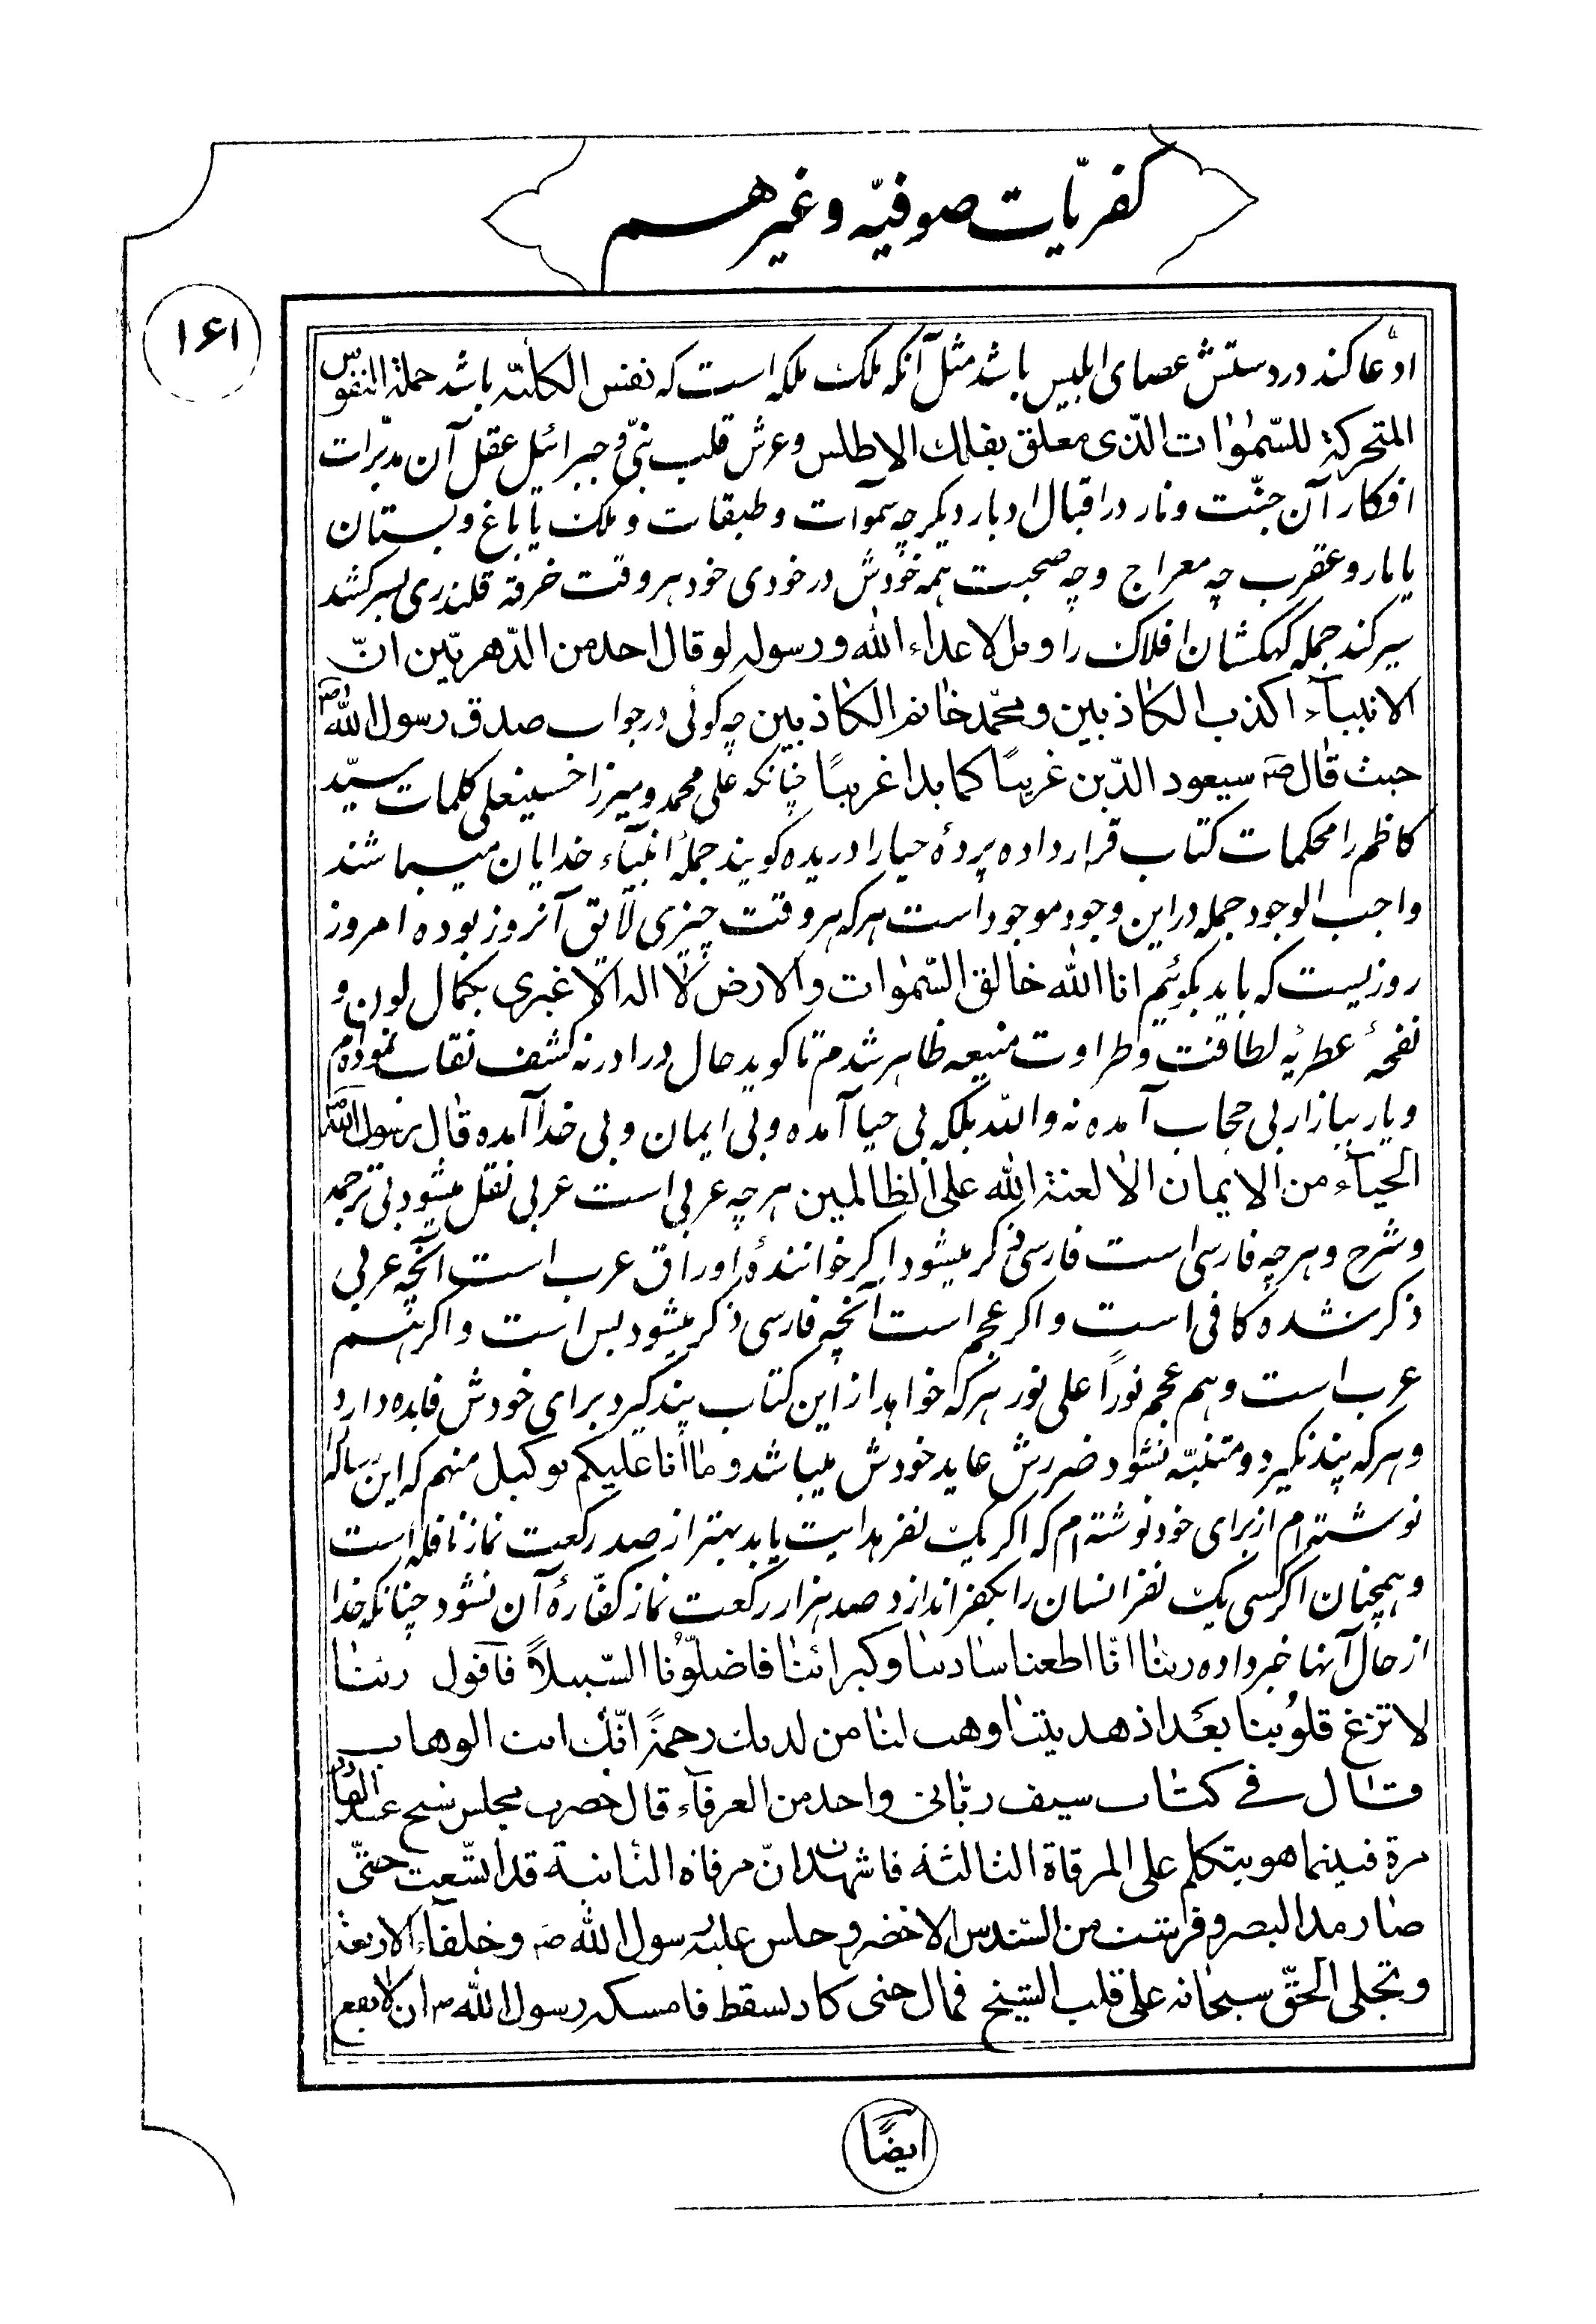 کفریّات صوفیّه و غیرهم
۱۶۱
ادّعا کند در دستش عصای ابلیس باشد مثل آنکه ملک ملکه است که نفس الکلیّه باشد حملة النفوس
المتحرکة للسّمٰوٰات الّذی معلق بفلك الاطلس و عرش قلب نبّی و جبرائیل عقل آن مدبّرات
افکار آن جنّت و نار در اقبال ادبار دیکر چه سموآت و طبقات و ملک یا باغ و بستان
یا مار و عقرب چه معراج و چه صحبت همه خودش در خودی خود هر وقت خرقه قلندری بسر کشد
سیر کند جمله کهکشان افلاک را و مل لاعداء اللّه و رسوله لو قال احد من الدّهریّین انّ
الانبیآء اکذب الکٰاذبین و محمّد خاتم الکٰاذبین چه کوئی در جواب صدق رسول اللّه ص
حیث قٰال ص سیعود الدّین غریبًا کما بدا غریبًا چنانکه علی محمد و میرزا حسینعلی کلمات سیّد
کاظم را محکمات کتاب قرار داده پردهٔ حیا را دریده کویند جملهٔ انبیآء خدایان میباشند
واجب الوجود جمله در این وجود موجود است هر که هر وقت چیزی لایق آنروز بوده امروز
روزیست که باید بکوئیم انا اللّه خالق السّمٰوات و الارض لا اله الا غیری بکمال لون و
نفحهٔ عطریّه لطافت و طراوت منیعه ظاهر شدم تا کوید حال در ادرنه کشف نقاب نموده‌ام
و یار ببازار بی حجاب آمده نه و اللّه بلکه بی حیا آمده و بی ایمان و بی خدا آمده قٰال رسول اللّه ص
الحیآء من الایمان الا لعنة اللّه علی الظالمین هر چه عربی است عربی نقل میشود بی ترجمه
و شرح و هر چه فارسی است فارسی ذکر میشود اکر خوانندهٔ اوراق عرب است آنچه عربی
ذکر شده کافی است و اکر عجم است آنچه فارسی ذکر میشود بس است و اکر هم
عرب است و هم عجم نورًا علی نور هر که خواهد از این کتاب پند کیرد برای خودش فایده دارد
و هر که پند نکیرد و متنبّه نشود ضررش عاید خودش میباشد و مٰا أنا علیکم بوکیل منهم که این رساله
نوشته‌ام از برای خود نوشته‌ام که اکر یک نفر هدایت یابد بهتر از صد رکعت نماز نافله است
و همچنان اکر کسی یک نفر انسان را بکفر اندازد صد هزار رکعت نماز کفّارهٔ آن نشود چنانکه خدا
از حال آنها خبر داده ربنٰا انّا اطعنا سٰادتنٰا و کبرائنٰا فاضلّونا السّبیلاً فاقول ربنٰا
لا تزغ قلوبنا بعد اذ هدیتنٰا و هب لنٰا من لدنك رحمةً انّك انت الوهاب
و قٰال فی کتٰاب سیف ربّانی واحد من العرفآء قال حضرت مجلس شیخ عبد القادر
مرة فبینما هو یتکلم علی المرقاة الثالثة فاشهدت انّ مرقاة الثانیة قد اتّسعت حتّی
صٰار مد البصر و فرشت من السّندس الاخضر و جلس علیه رسول اللّه ص و خلفآء الاربعة
و تجلی الحقّ سبحٰانه علی قلب الشیخ فمال حتی کاد یسقط فامسکه رسول اللّه ص ان لا یقع
ایضًا